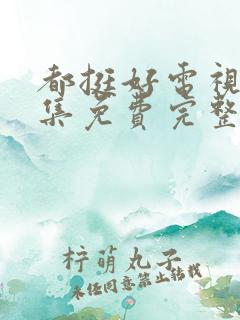 都挺好電視
集免費完整
梓萌丸子
未经同意禁止转载